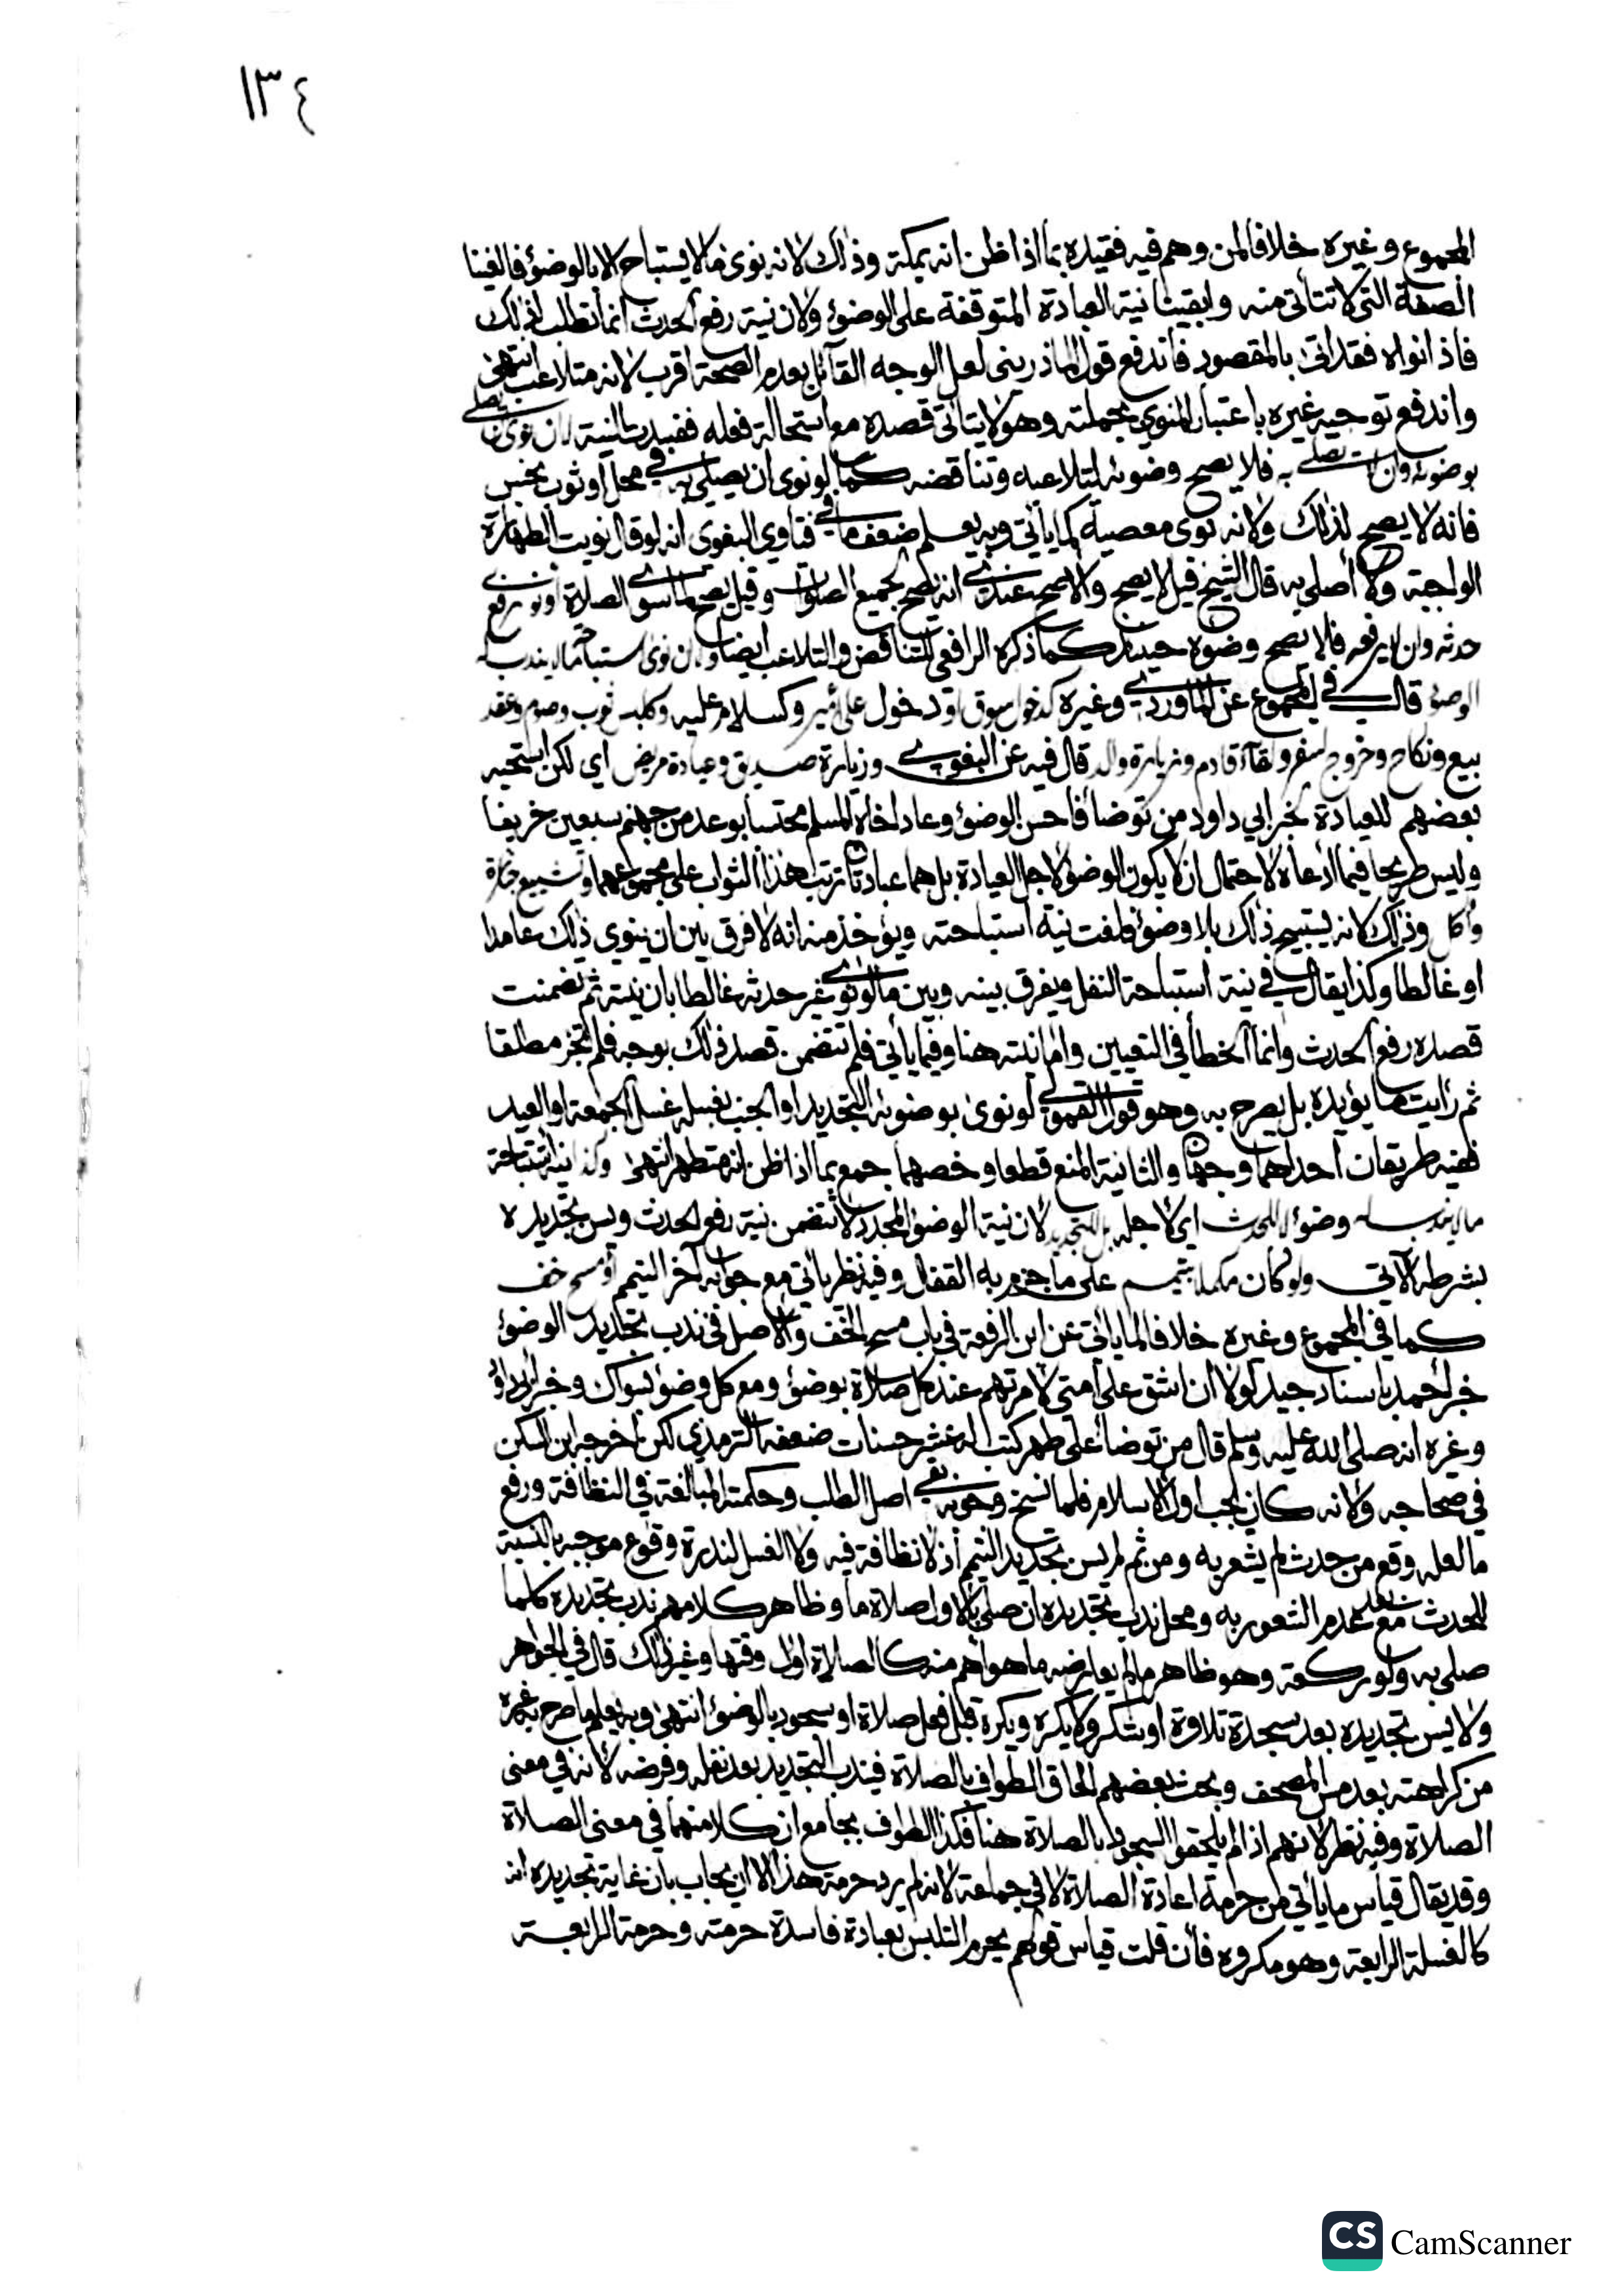 ١٣٤
المجموع وغيره خلافا لمن وهم فيه فقيده بما اذا ظن انه بمكة وذلك لانه نوى ما لا يستباح الا بالوضوء فالغينا
الصفة التي لا تتأتى منه وابقينا نية العبادة المتوقفة على الوضوء ولان نية رفع الحدث انما تطلب لذلك
فاذا نواه فقد اتى بالمقصود فاندفع قول الماذريني لعل الوجه القائل بعدم الصحة اقرب لانه متلاعب انتهى
واندفع توجيه غيره باعتبار المنوي بجملته وهو لا يتأتى قصده مع استحالة فعله ففسدت النية ان نوى ان يصلي
بوضوئه وان لا يصلي به فلا يصح وضوئه لتلاعبه وتناقضه كما لو نوى ان يصلي به في محل او ثوب نجس
فانه لا يصح لذلك ولانه نوى معصية كما يأتي وبه يعلم ضعف ما في فتاوي البغوي انه لو قال نويت الطهارة
الواجبة ولا اصلي به قال الشيخ قيل لا يصح والاصح عندي انه يصح لجميع الصلوات وقيل يصح لما سوى الصلاة او نوى رفع
حدثه وان لا يرفعه فلا يصح وضوه حينئذ كما ذكره الرافعي للتناقض والتلاعب ايضا وان نوى استباحة ما يندب له
الوضوء قال في المجموع عن الماوردي وغيره كدخول سوق او دخول على امير وكسلام عليه وكلبس ثوب وصوم وعقد
بيع ونكاح وخروج لسفر ولقاء قادم وزيارة والد قال فيه عن البغوي وزيارة صديق وعيادة مريض اي لكن استحبه
بعضهم للعيادة بخبر ابي داود من توضأ فاحسن الوضوء وعاد اخاه المسلم محتسبا بوعد من جهنم سبعين خريفا
وليس صريحا فيما ادعاه لاحتمال ان لا يكون الوضوء لاجل العيادة بل هما عبادتان ترتب هذا الثواب على مجموعهما وتشييع جنازة
واكل وذلك لانه يستبيح ذلك بلا وضوء فلغت نية استباحته ويؤخذ منه انه لا فرق بين ان ينوي ذلك عامدا
او غالطا وكذا يقال في نية استباحة النفل ويفرق بينه وبين ما لو نوى غير حدثه غالطا بان نيته ثم تضمنت
قصده رفع الحدث وانما الخطأ في التعيين واما نيته هنا وفيما يأتي فلم تتضمن قصد ذلك بوجه فلم تجز مطلقا
ثم رأيت ما يؤيده بل يصرح به وهو قول القمولي لو نوى بوضوئه التجديد او الجنب بغسله غسل الجمعة او العيد
ففيه طريقان احداهما وجهان والثانية المنع قطعا وخصهما جمع بما اذا ظن انه متطهر انتهى وكذا نية استباحة
ما يندب له وضوء لا للحدث اي لا جله بل للتجديد لان نية الوضوء المجدد لا تتضمن نية رفع الحدث ويسن تجديده
بشرطه الآتي ولو كان مكملا بتيمم على ما جزم به القفال وفيه نظر يأتي مع جوابه آخر التيمم او مسح خف
كما في المجموع وغيره خلافا لما يأتي عن ابن الرفعة في باب مسح الخف والاصل في ندب تجديد الوضوء
خبر احمد باسناد جيد لولا ان اشق على امتي لامرتهم عند كل صلاة بوضوء ومع كل وضوء بسواك وخبر ابي داود
وغيره انه صلى الله عليه وسلم قال من توضأ على طهر كتب له عشر حسنات ضعفه الترمذي لكن اخرجه ابن السكن
في صحاحه ولانه كان يجب اول الاسلام فلما نسخ وجوبه بقي اصل الطلب وحكمته المبالغة في النظافة ورفع
ما لعله وقع من حدث لم يشعر به ومن ثم لم يسن تجديد التيمم اذ لا نظافة فيه ولا الغسل لندرة وقوع موجبه بالنسبة
للحدث مع بعد عدم الشعور به ومحل ندب تجديده ان صلى بالاول صلاة ما وظاهر كلامهم ندب تجديده كلما
صلى به ولو ركعة وهو ظاهر ما لم يعارضه ما هو اهم منه كالصلاة اول وقتها وغير ذلك قال في الجواهر
ولا يسن تجديده بعد سجدة تلاوة او شكر ولا يكره ويكره قبل فعل صلاة او سجود بالوضوء انتهى وبه يعلم ما صرح به غيره
من كراهته بعد مس المصحف وبحث بعضهم الحاق الطواف بالصلاة فيندب التجديد بعد نفله وفرضه لانه في معنى
الصلاة وفيه نظر لانهم اذا لم يلحقوا السجود بالصلاة هنا فكذا الطواف بجامع ان كلا منهما في معنى الصلاة
وقد يقال قياس ما يأتي من حرمة اعادة الصلاة لا في جماعة لانه لم يرد حرمة هذا الا ان يجاب بان غاية تجديده انه
كالغسلة الرابعة وهو مكروه فان قلت قياس قولهم يحرم التلبس بعبادة فاسدة حرمته وحرمة الرابعة
CS CamScanner